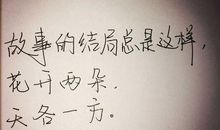 故事的结局总是这样,
花开两朵.
天各一方。